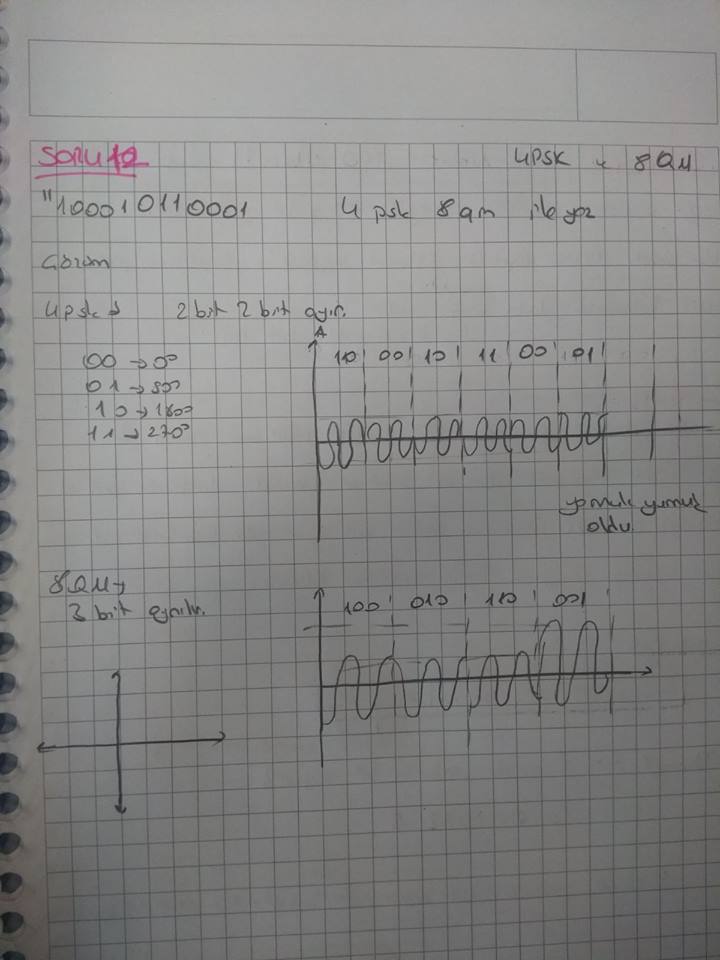 SORU 12
4PSK 8QAM
"100010110001 4 psk 8qam ile yaz
Çözüm
4psk 2 bit 2 bit ayır.
A
00 → 0°
01 → 90
10 → 180
11 → 270°
10 00 10 11 00 01
yamuk yumuk
oldu
8QAM →
3 bit ayrılır.
100 010 110 001